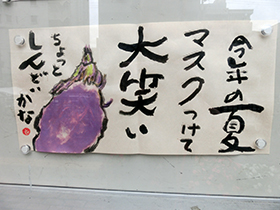 今年の夏
マスクつけて
大笑い
ちょっと
しんどい
かな